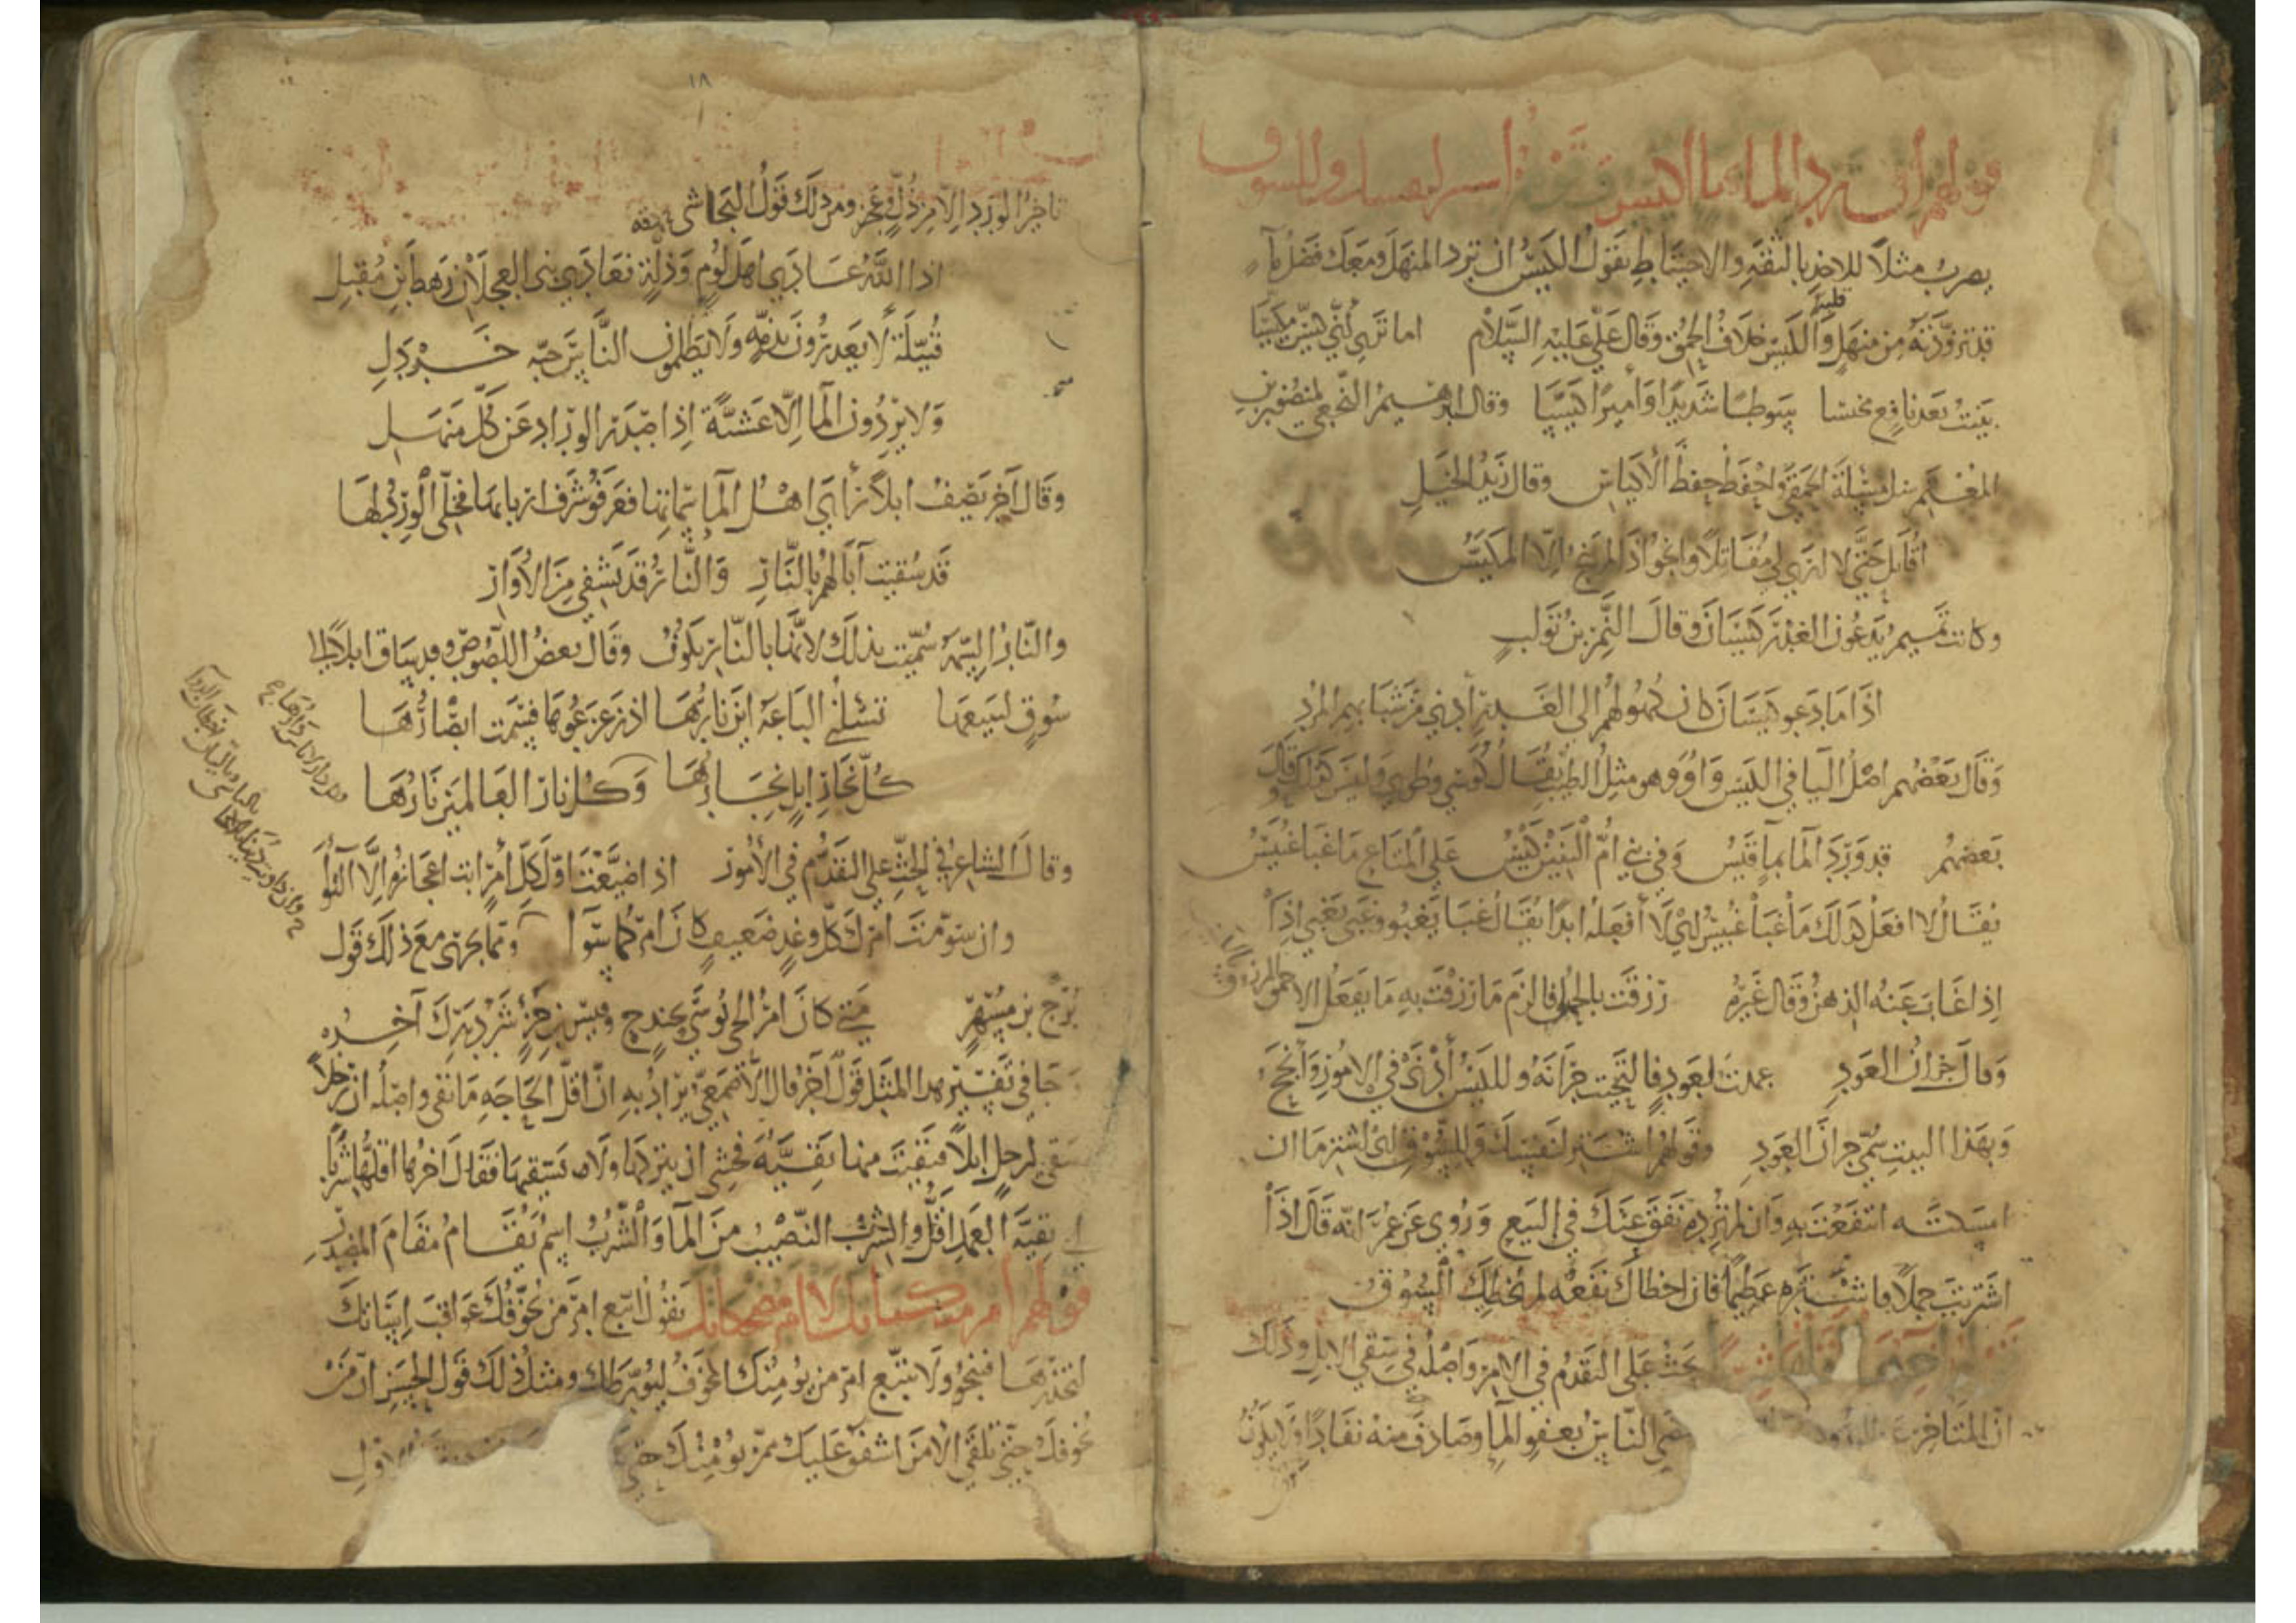 قولهم أن ترد الماء بماء أكيس
يضرب مثلا للاخذ بالثقة والاحتياط يقول الكيس ان ترد المنهل ومعك فضل ماء
قد تزودته من منهل قبله والكيس خلاف الحمق وقال علي عليه السلام اما تراني كيسا مكيسا
بنيت بعد نافع مخيسا وقال ابرهيم النخعي لمنصور بن
المعتمر سل مسئلة الحمقى واحفظ حفظ الاكياس وقال زيد الخيل
أقاتل حتى لا ارى لي مقاتلا وانجو اذا لم ينج الا المكيس
وكانت تميم يدعون الغدر كيسان وقال النمر بن تولب
اذا ما دعو كيسان كانت كهولهم الى الغدر أدنى من شبابهم المرد
وقال بعضهم اصل اليا في الكيس واو وهو مثل الطيب يقال كوسى وطوبى وليس كذلك وقال
بعضهم قد ورد الما بماء قيس وفي بني ام البنين كيس على المتاع ما غبا غبيس
يقال لا افعل كذلك ما غبا غبيس اي لا أفعله ابدا يقال غبا يغبو وغبي يغبى اذا
اذا غاب عنه الذهن وقال غيره رزقت بالحمق فالزم ما رزقت به ما يفعل الاحمق المرزوق
وقال جران العود عمدت لعود فالتحيت جرانه وللكيس أدنى في الامور وانجح
وبهذا البيت سمي جران العود وقولهم اشتر لنفسك وللسوق اي اشتر ما ان
امسكته انتفعت به وان لم ترده نفق عنك في البيع وروي عن عمر انه قال اذا
اشتريت جملا فاشتره عظيما فان اخطاك نفعه لم تخطك السوق
يحث على التقدم في الامر واصله في سقي الابل وذلك
ان المتاخر الناس بعفو الما وصادف منه نفادا ولا يكون
١٨
تاخر الورد الا من ذل وعجز ومن ذلك قول النجاشي
اذا الله عادى اهل لوم وذلة فعادى بني العجلان رهط ابن مقبل
قبيلة لا يغدرون بذمة ولا يظلمون الناس حبة خردل
ولا يردون الما الا عشية اذا صدر الوراد عن كل منهل
وقال آخر يصف ابلا رأى اهل الما سماتها فعرفو شرف اربابها فخلى الورد لها
قد سقيت آبالهم بالنار والنار قد تشفي من الاوار
والنار السمة سميت بذلك لانها بالنار تكون وقال بعض اللصوص وقد ساق ابلا الى
سوق ليبيعها تسئلني الباعة اين نارها اذ زعزعوها فسمت ابصارها
كل نجار ابل نجارها وكل نار العالمين نارها
وقال الشاعر في الحث على التقدم في الأمور اذا ضيعت اول كل أمر ابت اعجازه الا التوا
وان سومت امرك كل وغد ضعيف كان امركما سوا ومما يجرى مع ذلك قول
برج بن مسهر متى كان امر الحي يوسى بجندج وقيس بن جزء شر دبرك آخره
جا في تفسير هذا المثل قول آخر قال الاصمعي يراد به ان اقل الحاجة ما بقي واصله ان رجلا
سقى لرجل ابلا فبقيت منها بقية فخشي ان يتركها ولا يستقيها فقال آخرها اقلها شربا
اي بقية العمل اقل والشرب النصيب من الما والشرب اسم يقام مقام المصدر
قولهم امر مبكياتك لا امر مضحكاتك يقول اتبع امر من يخوفك عواقب اساتك
لتحذرها فتنجو ولا تتبع امر من يومنك المخوف ليورطك ومثل ذلك قول الحسن ان من
يخوفك حتى تلقى الامن اشفق عليك ممن يومنك حتى الاول